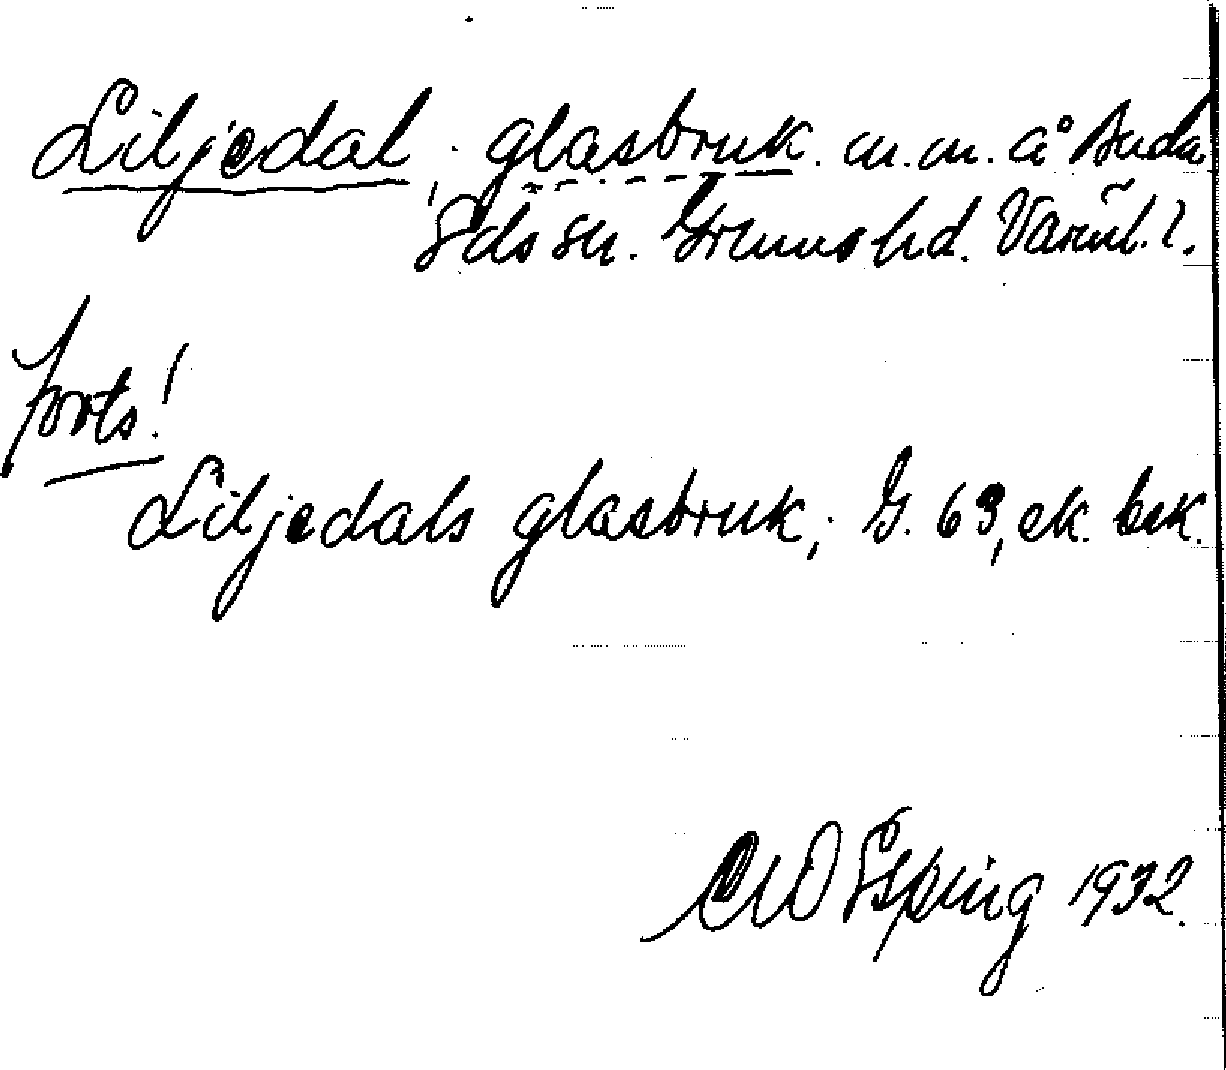 Liljedal, glasbruk. m.m. å Anda
Eds sn. Grums hd. Värml. l.
forts!
Liljedals glasbruk; G. 63, ek. bok.
CWO Esping 1932.